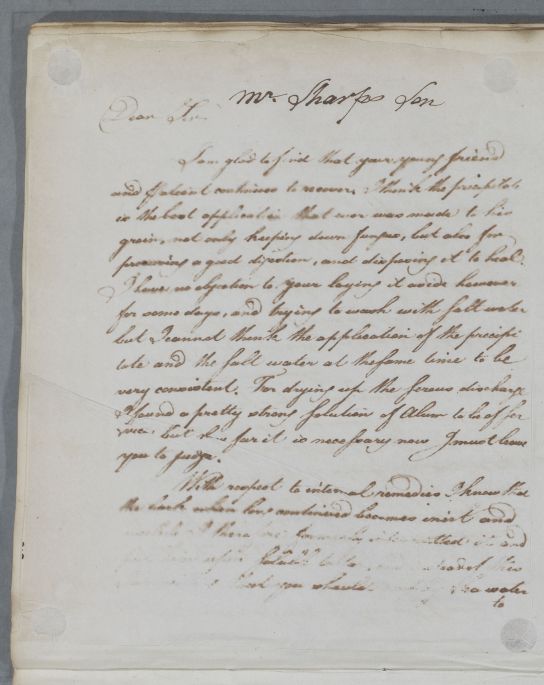 Mr. Sharps Son
Dear Sir,
I am glad to find that your young friend
and Patient continues to recover. I think the precipitate
is the best application that ever was made to his
groin, not only keeping down fungus, but also for
procuring a good digestion, and disposing it to heal.
I have no objection to your laying it aside however
for some days, and trying to wash with salt water
but I cannot think the application of the precipi
tate and the salt water at the same time to be
very consistent. For drying up the serous discharge
I found a pretty strong solution of Alum to be of ser
vice but how far it is necessary now I must leave
you to judge.
With respect to internal remedies I know that
the bark when long continued becomes inert and
I therefore formerly intermitted it and
to
you should water
to